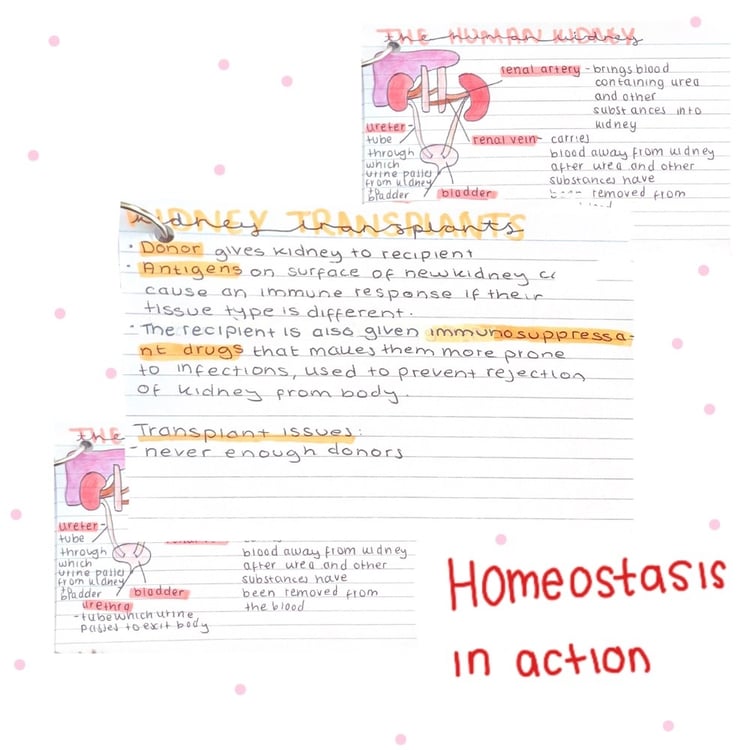 THE HUMAN KIDNEY
the human kidney
renal artery - brings blood
containing urea
and other
substances into
kidney
ureter -
tube
through
which
urine passes
from kidney
to
bladder
renal vein - carries
blood away from kidney
after urea and other
substances have
been removed from
bladder
KIDNEY TRANSPLANTS
kidney transplants
• Donor gives kidney to recipient
• Antigens on surface of new kidney c
cause an immune response if their
tissue type is different.
• The recipient is also given immunosuppressa-
nt drugs that makes them more prone
to infections, used to prevent rejection
of kidney from body.
Transplant issues:
- never enough donors
THE
the
ureter -
tube
through
which
urine passes
from kidney
to
bladder
bladder
blood away from kidney
after urea and other
substances have
been removed from
the blood
urethra
- tube which urine
passes to exit body
Homeostasis
in action